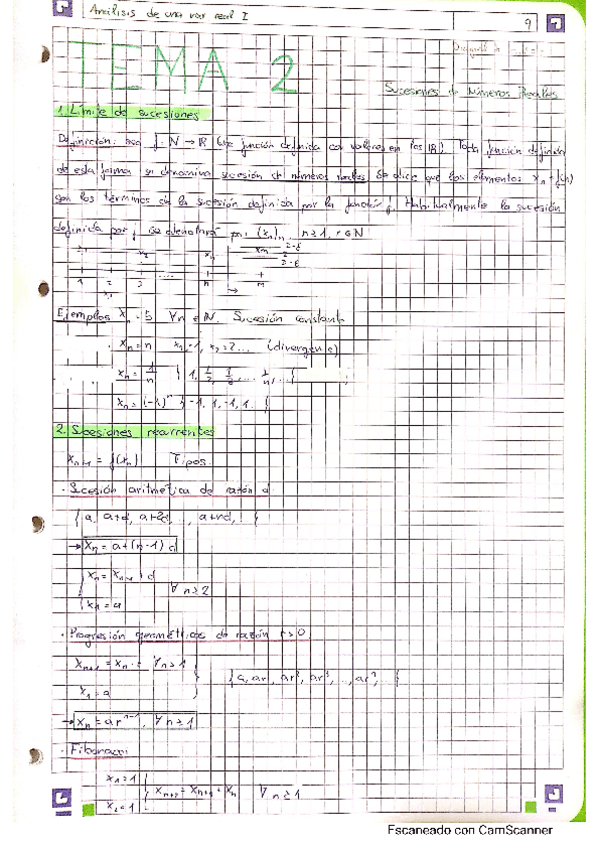 Análisis de una var real I
9
TEMA 2
Sucesiones de Números Reales
1. Límite de sucesiones
Definición: sea f: N → R (una función definida con valores en los R). Toda función definida
de esta forma se denomina sucesión de números reales. Se dice que los elementos xn = f(n)
son los términos de la sucesión definida por la función f. Habitualmente la sucesión
definida por f se denotará por (xn)n, n≥1, n∈N
1 2 n m
Ejemplos xn = 5 ∀n ∈ N. Sucesión constante
· xn = n x1 = 1, x2 = 2... (divergente)
· xn = 1/n { 1, 1/2, 1/3, ... 1/n, ... }
· xn = (-1)^n { -1, 1, -1, 1... }
2. Sucesiones recurrentes
xn+1 = f(xn) Tipos:
· Sucesión aritmética de razón d
{ a, a+d, a+2d, ..., a+nd, ... }
→ xn = a + (n-1) d
{ xn = xn-1 + d
∀ n ≥ 2
x1 = a
· Progresión geométricas de razón r>0
xn+1 = xn · r ∀n ≥ 1
{ a, ar, ar², ar³, ..., arⁿ, ... }
x1 = a
→ xn = ar^n-1, ∀ n ≥ 1
· Fibonacci
x1 = 1
xn+2 = xn+1 + xn ∀ n ≥ 1
x2 = 1
Escaneado con CamScanner